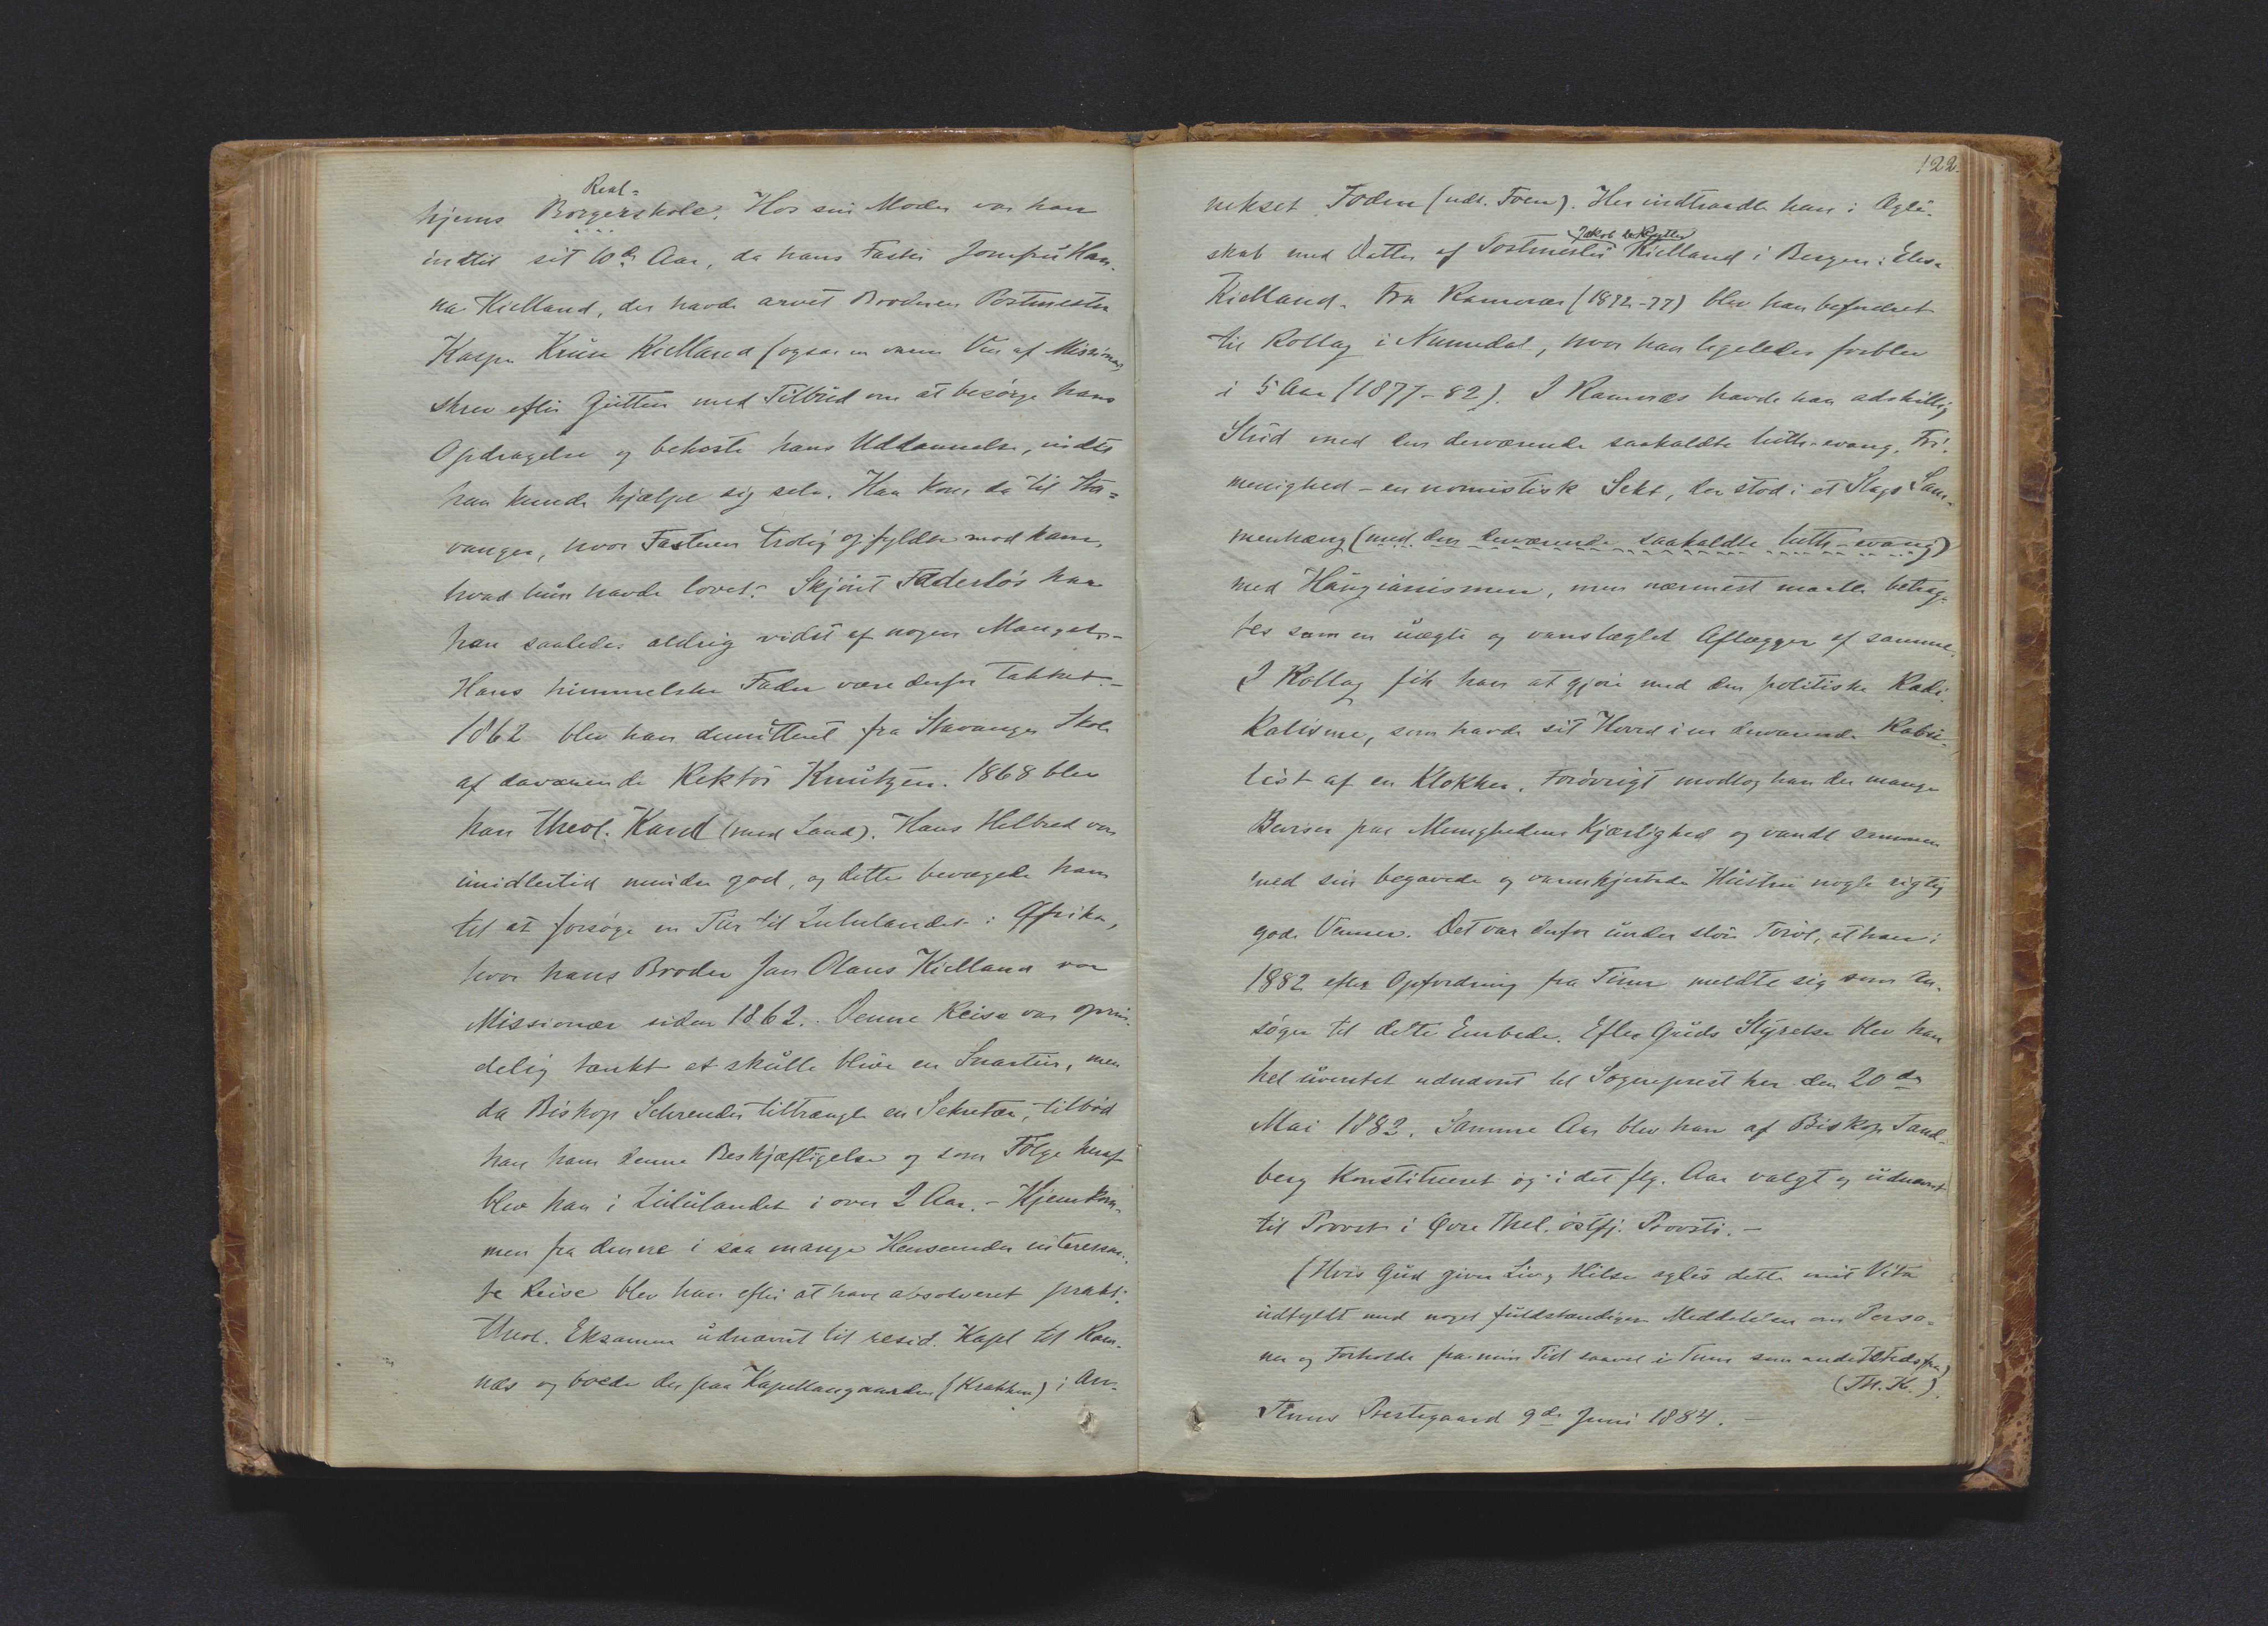 Real=
hjems Borgerskole. Hos sin Moder var han
indtil sit 10de Aar, da hans Faster Jomfru Han-
na Kielland, der havde arvet Broderen Postmester
Kasper Kruse Kielland (ogsaa en varm Ven af Missionen)
skrev efter Gutten med Tilbud om at besørge hans
Opdragelse og bekoste hans Uddannelse, indtil
han kunde hjælpe sig selv. Han kom da til Sta=
vanger, hvor Fasteren trolig opfyldte mod ham,
hvad hun havde lovet. Skjønt Faderløs har
han saaledes aldrig vidst af nogen Mangel. –
Hans himmelske Fader være derfor takket. –
1862 blev han demitteret fra Stavanger Skole
af daværende Rektor Knutzen. 1868 blev
han theol. Kand (med Laud). Hans Helbred var
imidlertid mindre god, og dette bevægede ham
til at forsøge en Tur til Zululandet i Afrika,
hvor hans Broder Jan Olaus Kielland var
Missionær siden 1862. Denne Reise var oprin-
delig tænkt at skulle blive en Snartur, men
da Biskop Schreuder tiltrængte en Sekretær, tilbød
han ham denne Beskjæftigelse og som Følge heraf
blev han i Zululandet i over 2 Aar. – Hjemkom-
men fra denne i saa mange Henseender interessan-
te Reise blev han efter at have absolveret prakt.
theol. Eksamen udnævnt til resid. Kapl til Ram-
næs og boede der paa Kapellangaarden (Krakken) i An-
122.
nekset Foden (udt. Foen). Her indtraadte han i Ægte-
skab med Datter af Postmester Kielland i Bergen: Elisa
Jakob de Rytter
Kielland. Fra Ramnæs (1872-77) blev han befordret
til Rollag i Numedal, hvor han ligeledes forblev
i 5 Aar (1877-82). I Ramnæs havde han adskillig
Strid med den derværende saakaldte luth-evang. Fri-
menighed – en nomistisk Sekt, der stod i et Slags Sam-
menhæng (med den derværende saakaldte luth-evang)
med Haugianismen, men nærmest maatte betrag-
tes som en uægte og vanslægtet Aflægger af samme.
I Rollag fik han at gjøre med den politiske Radi-
kalisme, som havde sit Hoved i en derværende Rabu-
list af en Klokker. Forøvrigt modtog han der mange
Beviser paa Menighedens Kjærlighed og vandt sammen
med sin begavede og varmhjertede Hustru nogle rigtig
gode Venner. Det var derfor under stor Tvivl, at han i
1882 efter Opfordring fra Tinn meldte sig som An-
søger til dette Embede. Efter Guds Styrelse blev han
hel uventet udnævnt til Sogneprest her den 20de
Mai 1882. Samme Aar blev han af Biskop Tand-
berg konstitueret og i det flg. Aar valgt og udnævnt
til Provst i Øvre Thel. østfj. Provsti. –
(Hvis Gud giver Liv og Helse agtes dette mit Vita
udfyldt med noget fuldstændigere Meddelelser om Perso-
ner og Forholde fra min Tid saavel i Tinn som andetsteds fra)
(Th. K.).
Tinns Prestegaard 9de Juni 1884. –